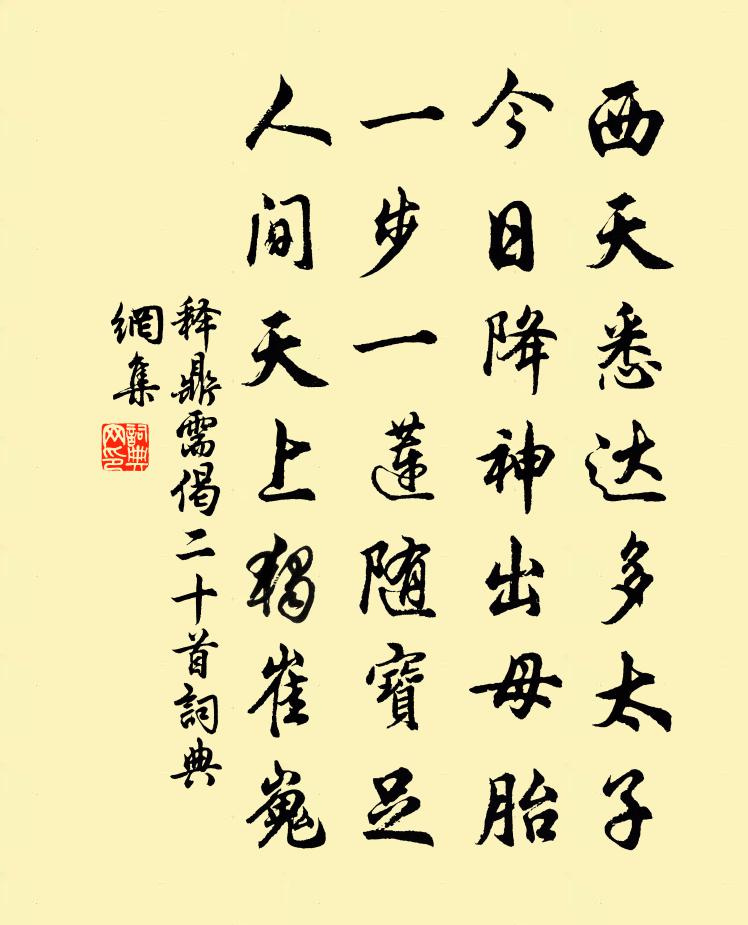 西天悉达多太子
今日降神出母胎
一步一蓮随寶足
人间天上獨崔嵬
释鼎需偈二十首詞典
網集
詞典
网印